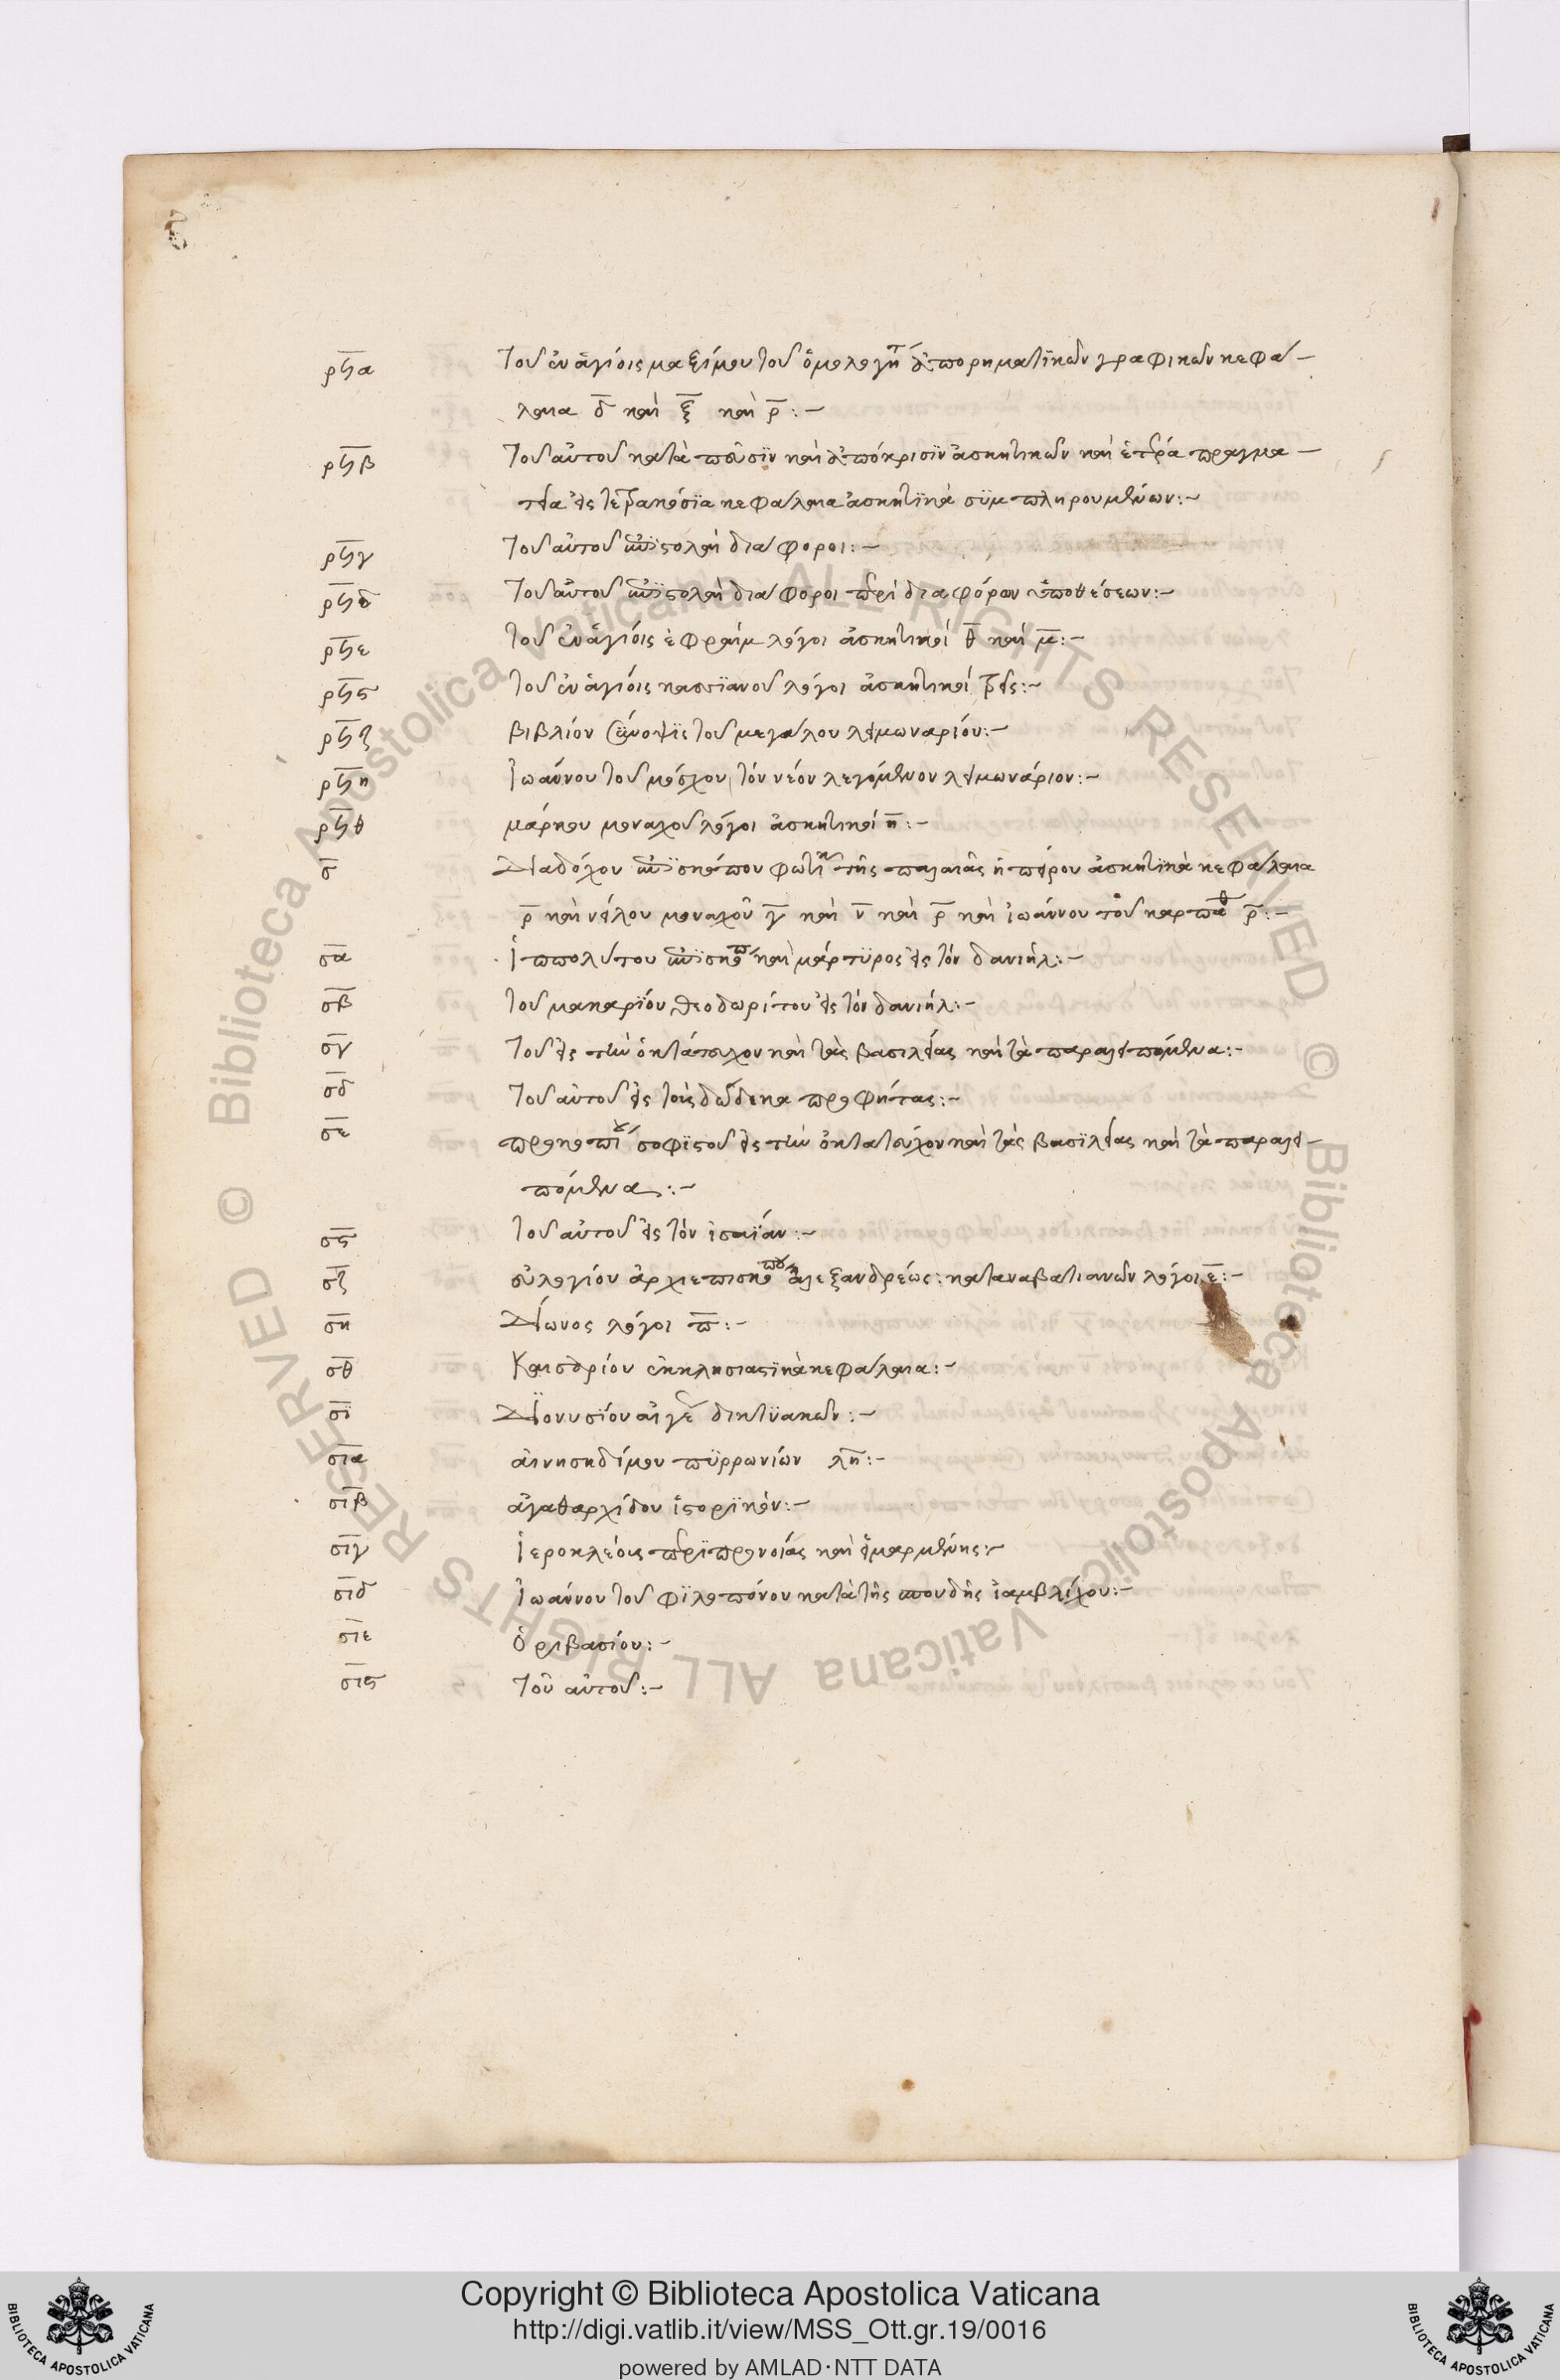 ρϟα Τοῦ ἐν ἁγίοις μαξίμου τοῦ ὁμολογητ ἀπορηματικῶν γραφικῶν κεφά-
λαια δ καὶ ξ καὶ ρ:-
ρϟβ Τοῦ αὐτοῦ κατὰ πεῦσϊν καὶ ἀπόκρισϊν ἀσκητικῶν καὶ ἑτέρα πραγμα-
τεία εἰς τετρακόσϊα κεφάλαια ἀσκητϊκὰ σϋμπληρουμένων:-
ρϟγ Τοῦ αὐτοῦ ἐπϊστολαὶ διάφοροι:-
ρϟδ Τοῦ αὐτοῦ ἐπϊστολαὶ διάφοροι περὶ διαφόρων ὑποθέσεων:-
ρϟε Τοῦ ἐν ἁγίοις ἐφραὶμ λόγοι ἀσκητικοί θ καὶ μ:-
ρϟϛ Τοῦ ἐν ἁγίοις κασσϊανοῦ λόγοι ἀσκητικοί τρεῖς:-
ρϟζ βιβλίον σύνοψϊς τοῦ μεγάλου λειμωναρίου:-
ρϟη Ἰωάννου τοῦ μόσχου, τὸν νέον λεγόμενον λειμωνάριον:-
ρϟθ μάρκου μοναχοῦ λόγοι ἀσκητικοί η:-
σ Διαδόχου ἐπϊσκόπου φωτικ τῆς παλαιᾶς ἠπείρου ἀσκητϊκὰ κεφάλαια
ρ καὶ νείλου μοναχοῦ γ καὶ ν καὶ ρ καὶ ἰωάννου τοῦ καρπαθ ρ:-
σα Ἱππολύτου ἐπϊσκόπ καὶ μάρτϋρος εἰς τὸν δανιήλ:-
σβ Τοῦ μακαρϊου θεοδωρίτου εἰς τὸν δανιήλ:-
σγ Τοῦ εἰς τὴν ὀκτάτευχον καὶ τὰς βασιλείας καὶ τὰ παραλειπόμενα:-
σδ Τοῦ αὐτοῦ εἰς τοὺς δώδεκα προφήτας:-
σε προκοπί σοφϊστοῦ εἰς τὴν ὀκτατεύχον καὶ τὰς βασϊλείας καὶ τὰ παραλει-
πόμενα:-
σϛ Τοῦ αὐτοῦ εἰς τὸν ἰσαϊαν:-
σζ εὐλογίου ἀρχιεπισκόπου ἀλεξανδρέως: κατὰ ναβατιανῶν λόγοι ε:-
ση Δίωνος λόγοι π:-
σθ Καισαρίου ἐκκλησιαστϊκὰ κεφάλαια:-
σι Διονυσϊου αἰγέ δικτϋακῶν:-
σια αἰνησηδίμου πϋρρωνίων λη:-
σιβ ἀγαθαρχίδου ἱστορϊκόν:-
σιγ Ἱεροκλέους περϊ προνοίας καὶ εἱμαρμένης:-
σιδ Ἰωάννου τοῦ φϊλοπόνου κατὰ τῆς σπουδῆς ἰαμβλίχου:-
σιε Ὀριβασίου:-
σιϛ Τοῦ αὐτοῦ:-
Copyright © Biblioteca Apostolica Vaticana
http://digi.vatlib.it/view/MSS_Ott.gr.19/0016
powered by AMLAD·NTT DATA